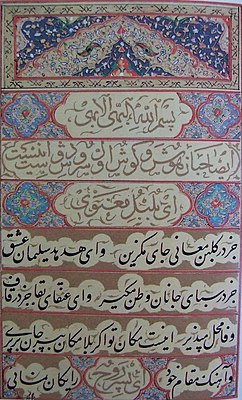 بسم الله البهی الابهی
ای صاحبان هوش و گوش اول سروش دوست اینست
ای بلبل معنوی
جز در گلبن معانی جای مگزین و ای هدهد سلیمان عشق
جز در سبای جانان وطن مگیر و ای عنقای بقا جز در قاف
وفا محل مپذیر اینست مکان تو اگر بلامکان بپر جان بر پری
و آهنگ مقام خود رایگان نمائی
ای پسر روح